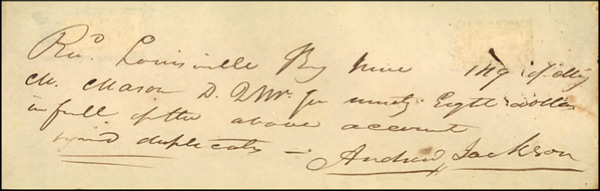 Recd. Louisville Ky June 1819 of
M. Mason D. Q Mr. Ge ninety Eight dollars
in full of the above account
signed duplicates — Andrew Jackson